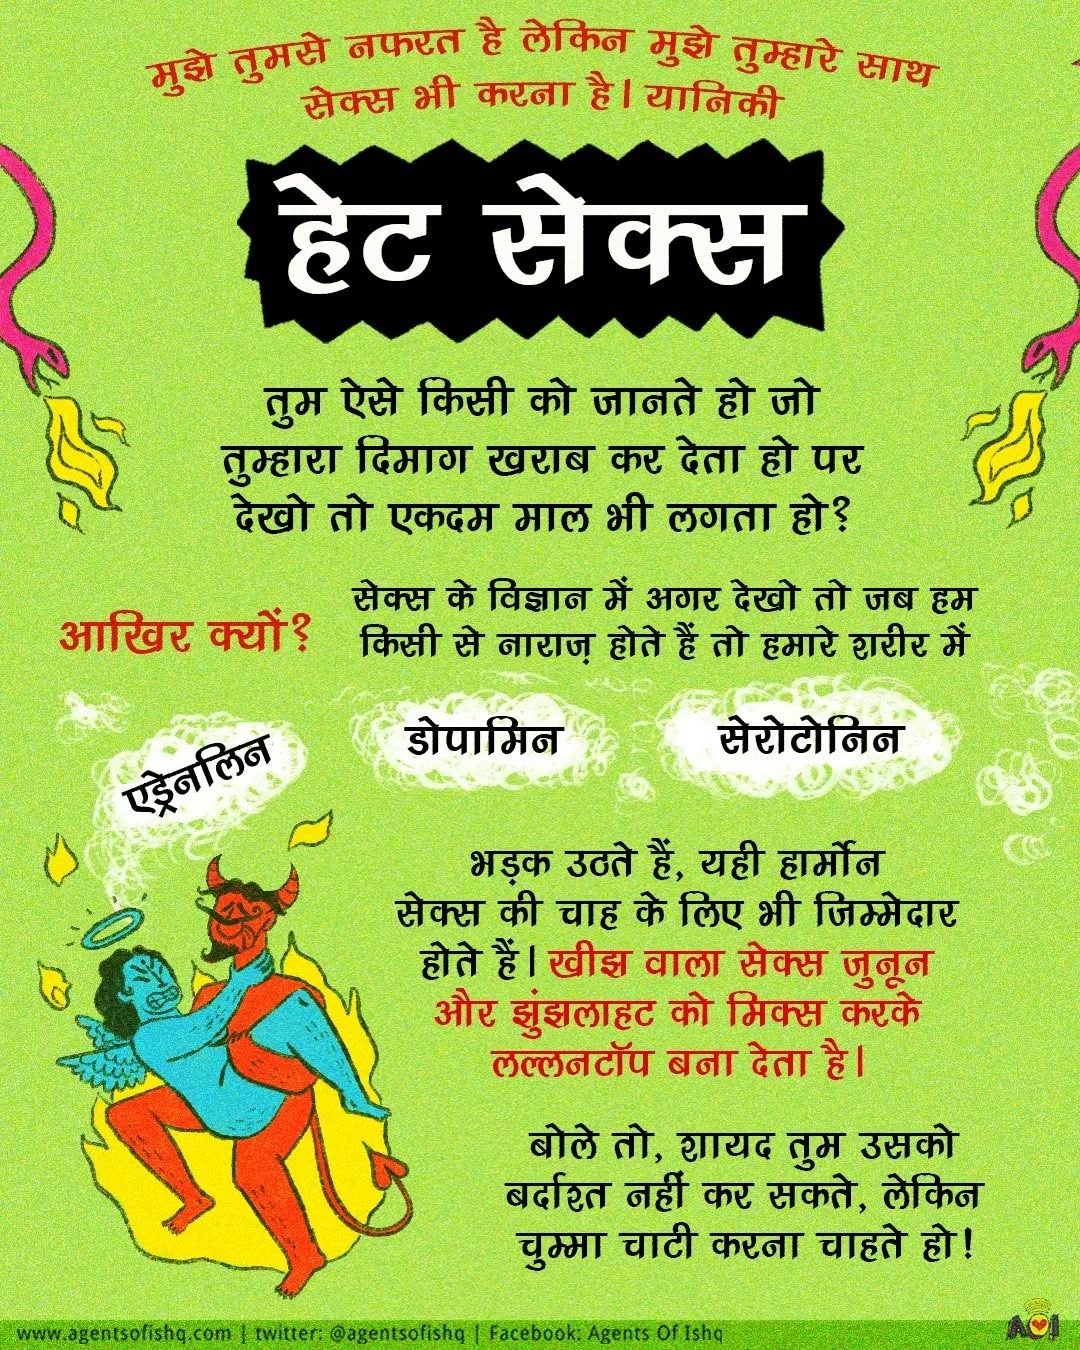 मुझे तुमसे नफरत है लेकिन मुझे तुम्हारे साथ
सेक्स भी करना है। यानिकी
हेट सेक्स
तुम ऐसे किसी को जानते हो जो
तुम्हारा दिमाग खराब कर देता हो पर
देखो तो एकदम माल भी लगता हो?
आखिर क्यों?
सेक्स के विज्ञान में अगर देखो तो जब हम
किसी से नाराज़ होते हैं तो हमारे शरीर में
एड्रेनलिन
डोपामिन
सेरोटोनिन
भड़क उठते हैं, यही हार्मोन
सेक्स की चाह के लिए भी जिम्मेदार
होते हैं। खीझ वाला सेक्स जुनून
और झुंझलाहट को मिक्स करके
लल्लनटॉप बना देता है।
बोले तो, शायद तुम उसको
बर्दाश्त नहीं कर सकते, लेकिन
चुम्मा चाटी करना चाहते हो!
www.agentsofishq.com | twitter: @agentsofishq | Facebook: Agents Of Ishq
AOI